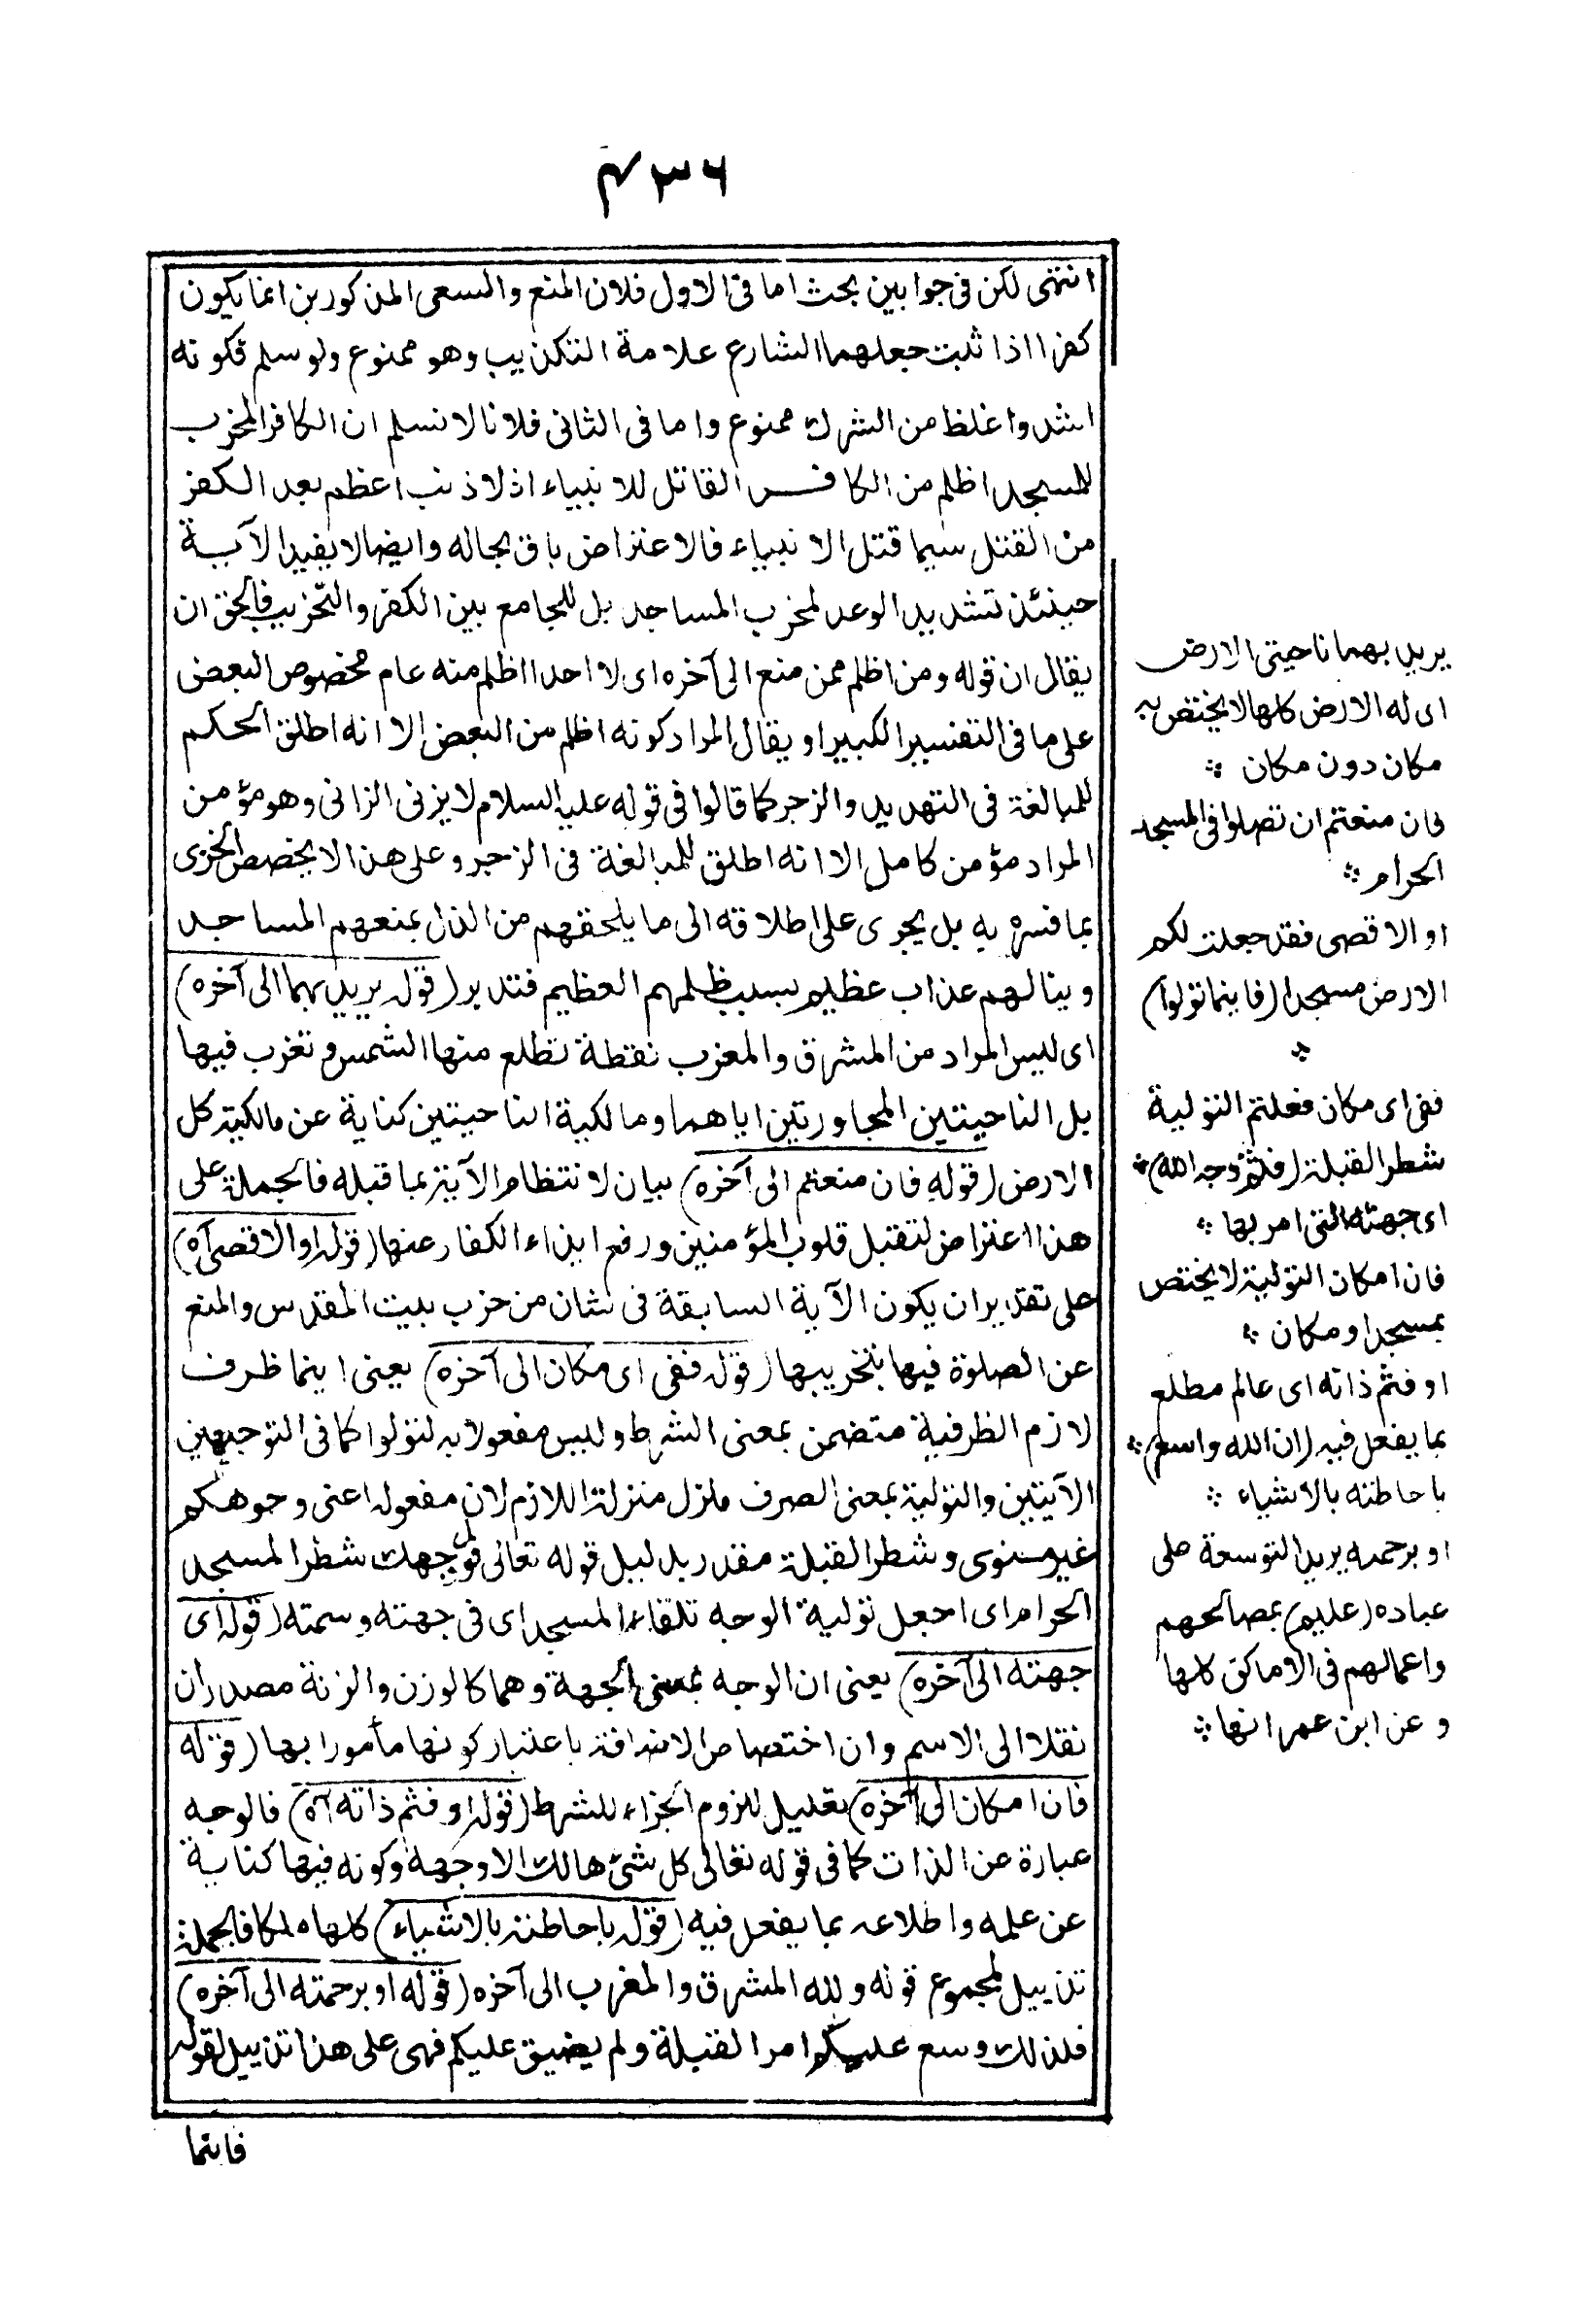 ٤٣٦
انتهى لكن فى جوابين بحث اما فى الاول فلان المنع والسعى المذكورين انما يكون
كفرا اذا ثبت جعلهما الشارع علامة التكذيب وهو ممنوع ولو سلم فكونه
اشد واغلظ من الشرك ممنوع واما فى الثانى فلانا لا نسلم ان الكافر المخرب
للمسجد اظلم من الكافر القاتل للانبياء اذ لا ذنب اعظم بعد الكفر
من القتل سيما قتل الانبياء فالاعتراض باق بحاله وايضا لا يفيد الآية
حينئذ تشديد الوعد لمخرب المساجد بل للجامع بين الكفر والتخريب فالحق ان
يقال ان قوله ومن اظلم ممن منع الى آخره اى لا احدا اظلم منه عام مخصوص البعض
على ما فى التفسير الكبير او يقال المراد كونه اظلم من البعض الا انه اطلق الحكم
للمبالغة فى التهديد والزجر كما قالوا فى قوله عليه السلام لا يزنى الزانى وهو مؤمن
المراد مؤمن كامل الا انه اطلق للمبالغة فى الزجر وعلى هذا لا يخصص الخزى
بما فسره به بل يجرى على اطلاقه الى ما يلحقهم من الذل بمنعهم المساجد
وينالهم عذاب عظيم بسبب ظلمهم العظيم فتدبر (قوله يريد بهما الى آخره)
اى ليس المراد من المشرق والمغرب نقطة تطلع منها الشمس وتغرب فيها
بل الناحيتين المجاورتين اياهما ومالكية الناحيتين كناية عن مالكية كل
الارض (قوله فان منعتم الى آخره) بيان لانتظام الآية بما قبله فالجملة على
هذا اعتراض لتقبل قلوب المؤمنين ورفع ايذاء الكفار عنها (قوله او الاقصى آه)
على تقدير ان يكون الآية السابقة فى شان من خرب بيت المقدس والمنع
عن الصلوة فيها بتخريبها (قوله ففى اى مكان الى آخره) يعنى اينما ظرف
لازم الظرفية متضمن بمعنى الشرط وليس مفعولا به لتولوا كما فى التوجيهين
الآتيين والتولية بمعنى الصرف منزل منزلة اللازم لان مفعوله اعنى وجوهكم
غير منوى وشطر القبلة مقدر بدليل قوله تعالى فول وجهك شطر المسجد
الحرام اى اجعل تولية الوجه تلقاء المسجد اى فى جهته وسمته (قوله اى
جهته الى آخره) يعنى ان الوجه بمعنى الجهة وهما كالوزن والزنة مصدران
نقلا الى الاسم وان اختصاص الاضافة باعتبار كونها مأمورا بها (قوله
فان امكان الى آخره) تعليل للزوم الجزاء للشرط (قوله او فثم ذاته آه) فالوجه
عبارة عن الذات كما فى قوله تعالى كل شئ هالك الا وجهه وكونه فيها كناية
عن علمه واطلاعه بما يفعل فيه (قوله باحاطته بالاشياء) كلها ملكا فالجملة
تذييل لمجموع قوله ولله المشرق والمغرب الى آخره (قوله او برحمته الى آخره)
فلذلك وسع عليكم امر القبلة ولم يضيق عليكم فهى على هذا تذييل لقوله
فاينما
يريد بهما ناحيتى الارض
اى له الارض كلها لا يختص به
مكان دون مكان
فان منعتم ان تصلوا فى المسجد
الحرام
او الاقصى فقد جعلت لكم
الارض مسجدا (فاينما تولوا)
ففى اى مكان فعلتم التولية
شطر القبلة (فثم وجه الله)
اى جهته التى امر بها
فان امكان التولية لا يختص
بمسجد او مكان
او فثم ذاته اى عالم مطلع
بما يفعل فيه (ان الله واسع)
باحاطته بالاشياء
او برحمته يريد التوسعة على
عباده (عليم) بمصالحهم
واعمالهم فى الاماكن كلها
وعن ابن عمر انها